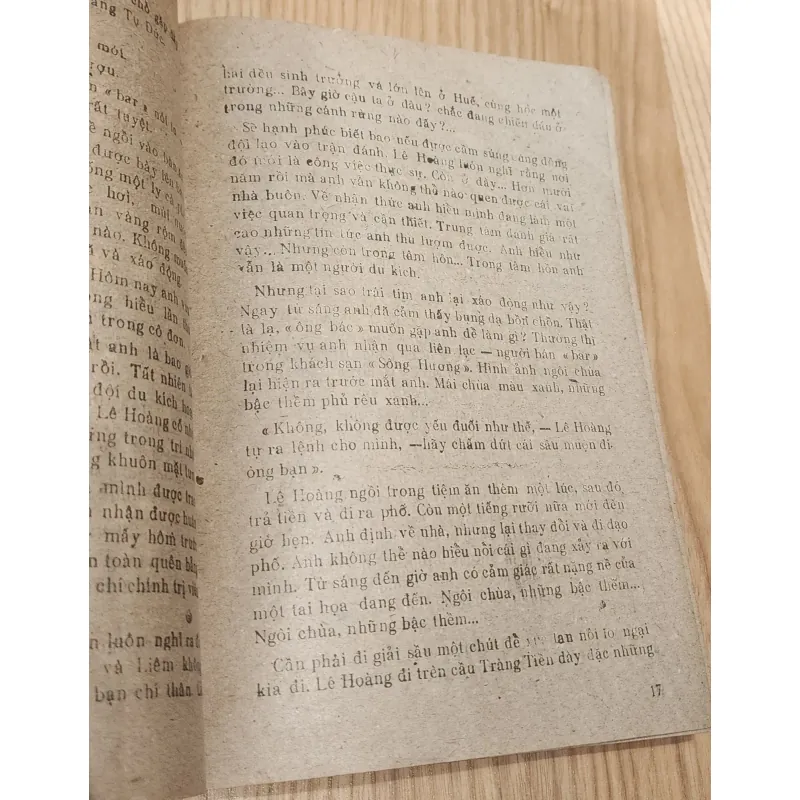 chỗ gặp
mới.
« bar » nổi
rất tuyệt.
ngồi vào
được bày lên
một ly
hơi,
vàng rộm
nào. Không
và xáo động
Hôm nay anh
hiểu lần
trong cô đơn.
anh là bao
rồi. Tất nhiên
đội du kích
Lê Hoàng cố
trong trí
khuôn mặt
mình được
nhận được
mấy hôm
toàn quên
chí chính trị
luôn nghĩ
và Liêm không
bạn chí thân
hai đều sinh trưởng và lớn lên ở Huế, cùng học một
trường... Bây giờ cậu ta ở đâu? chắc đang chiến đấu ở
trong những cánh rừng nào đấy?...
Sẽ hạnh phúc biết bao nếu được cầm súng cùng đồng
đội lao vào trận đánh. Lê Hoàng luôn nghĩ rằng nơi
đó mới là công việc thực sự. Còn ở đây... Hơn mười
năm rồi mà anh vẫn không thể nào quen được cái vai
nhà buôn. Về nhận thức anh hiểu mình đang làm một
việc quan trọng và cần thiết. Trung tâm đánh giá rất
cao những tin tức anh thu lượm được. Anh hiểu như
vậy... Nhưng còn trong tâm hồn... Trong tâm hồn anh
vẫn là một người du kích.
Nhưng tại sao trái tim anh lại xáo động như vậy?
Ngay từ sáng anh đã cảm thấy bụng dạ bồn chồn. Thật
là lạ, « ông bác » muốn gặp anh để làm gì? Thường thì
nhiệm vụ anh nhận qua liên lạc — người bán « bar »
trong khách sạn « Sông Hương». Hình ảnh ngôi chùa
lại hiện ra trước mắt anh. Mái chùa màu xanh, những
bậc thềm phủ rêu xanh...
« Không, không được yếu đuối như thế, — Lê Hoàng
tự ra lệnh cho mình, —hãy chấm dứt cái sầu muộn đi
ông bạn ».
Lê Hoàng ngồi trong tiệm ăn thêm một lúc, sau đó
trả tiền và đi ra phố. Còn một tiếng rưỡi nữa mới đến
giờ hẹn. Anh định về nhà, nhưng lại thay đổi và đi dạo
phố. Anh không thể nào hiểu nổi cái gì đang xảy ra với
mình. Từ sáng đến giờ anh có cảm giác rất nặng nề của
một tai họa đang đến. Ngôi chùa, những bậc thềm...
Ngôi chùa, những bậc thềm...
Cần phải đi giải sầu một chút để tan nỗi lo ngại
kia đi. Lê Hoàng đi trên cầu Tràng Tiền dày đặc những
17